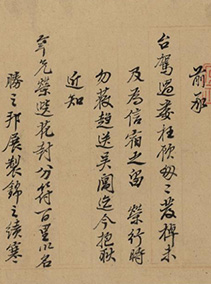 前承
台駕過婁枉顧匆匆發棹未
及為信宿之留 榮行時
勿獲趨送吴閶迄今抱歉
近知
年兄榮選花封分符百里以名
勝之邦展製錦之績寒